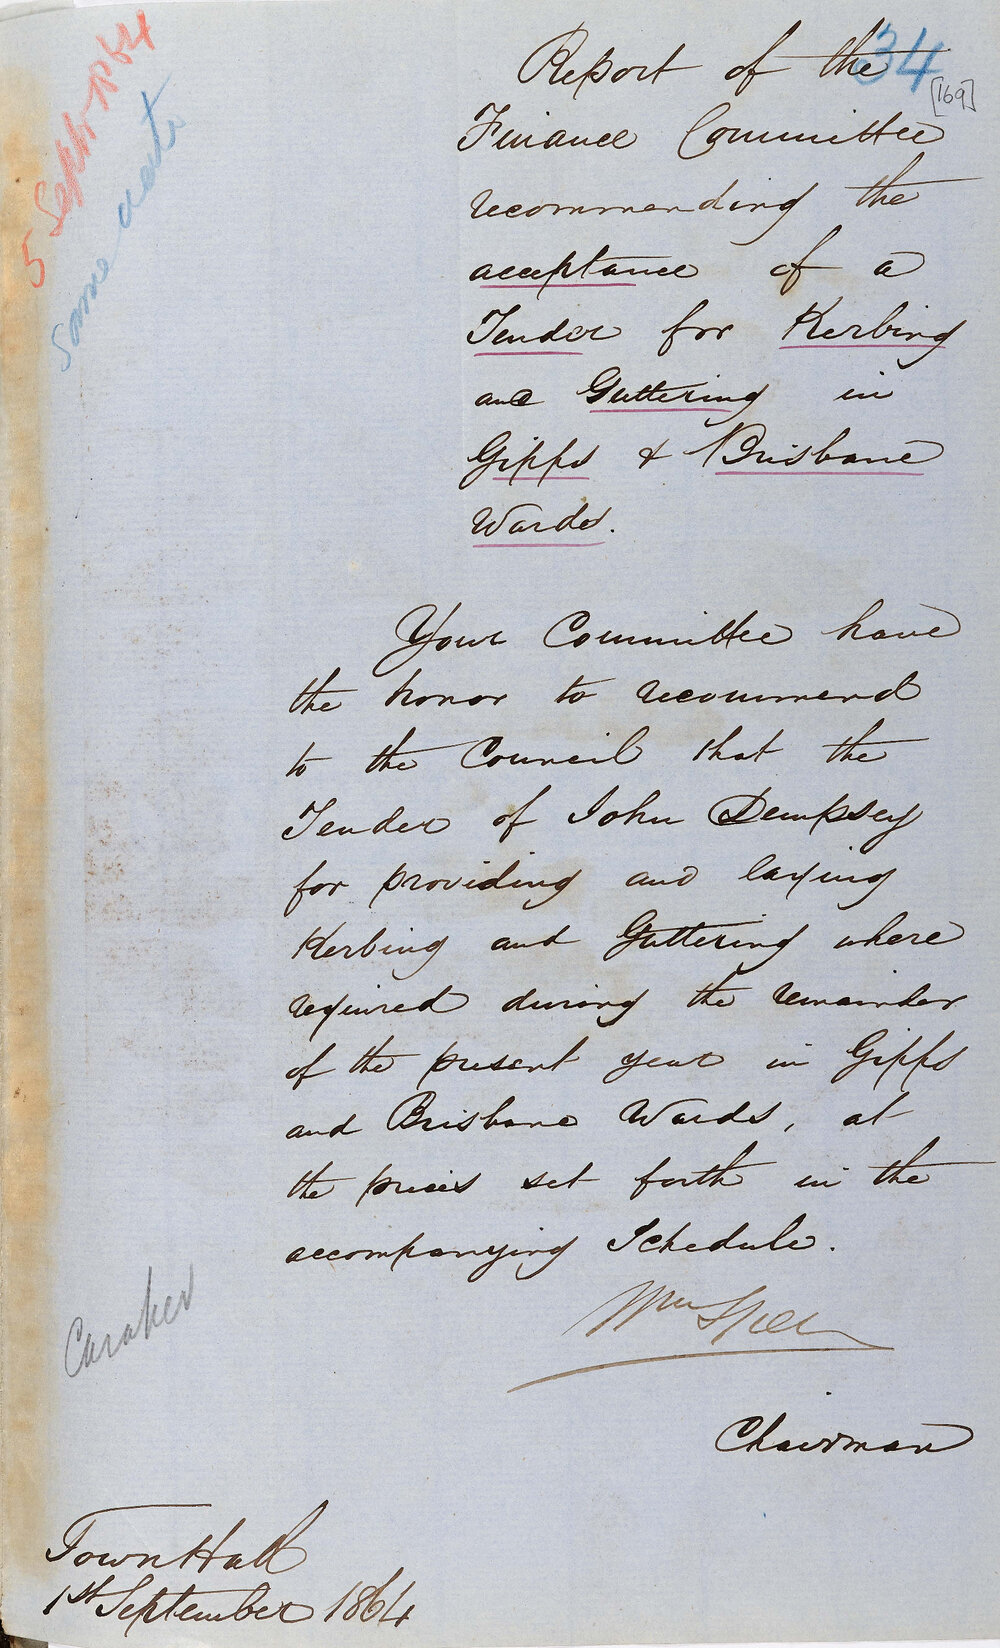 5 Septr 1864
same date
34
[169]
Report of the
Finance Committee
recommending the
acceptance of a
Tender for Kerbing
and Guttering in
Gipps & Brisbane
Wards.
Your Committee have
the honor to recommend
to the Council that the
Tender of John Dempsey
for providing and laying
Kerbing and Guttering where
required during the remainder
of the present year in Gipps
and Brisbane Wards, at
the prices set forth in the
accompanying Schedule.
Wm Speer
Chairman
Caraher
Town Hall
1st September 1864